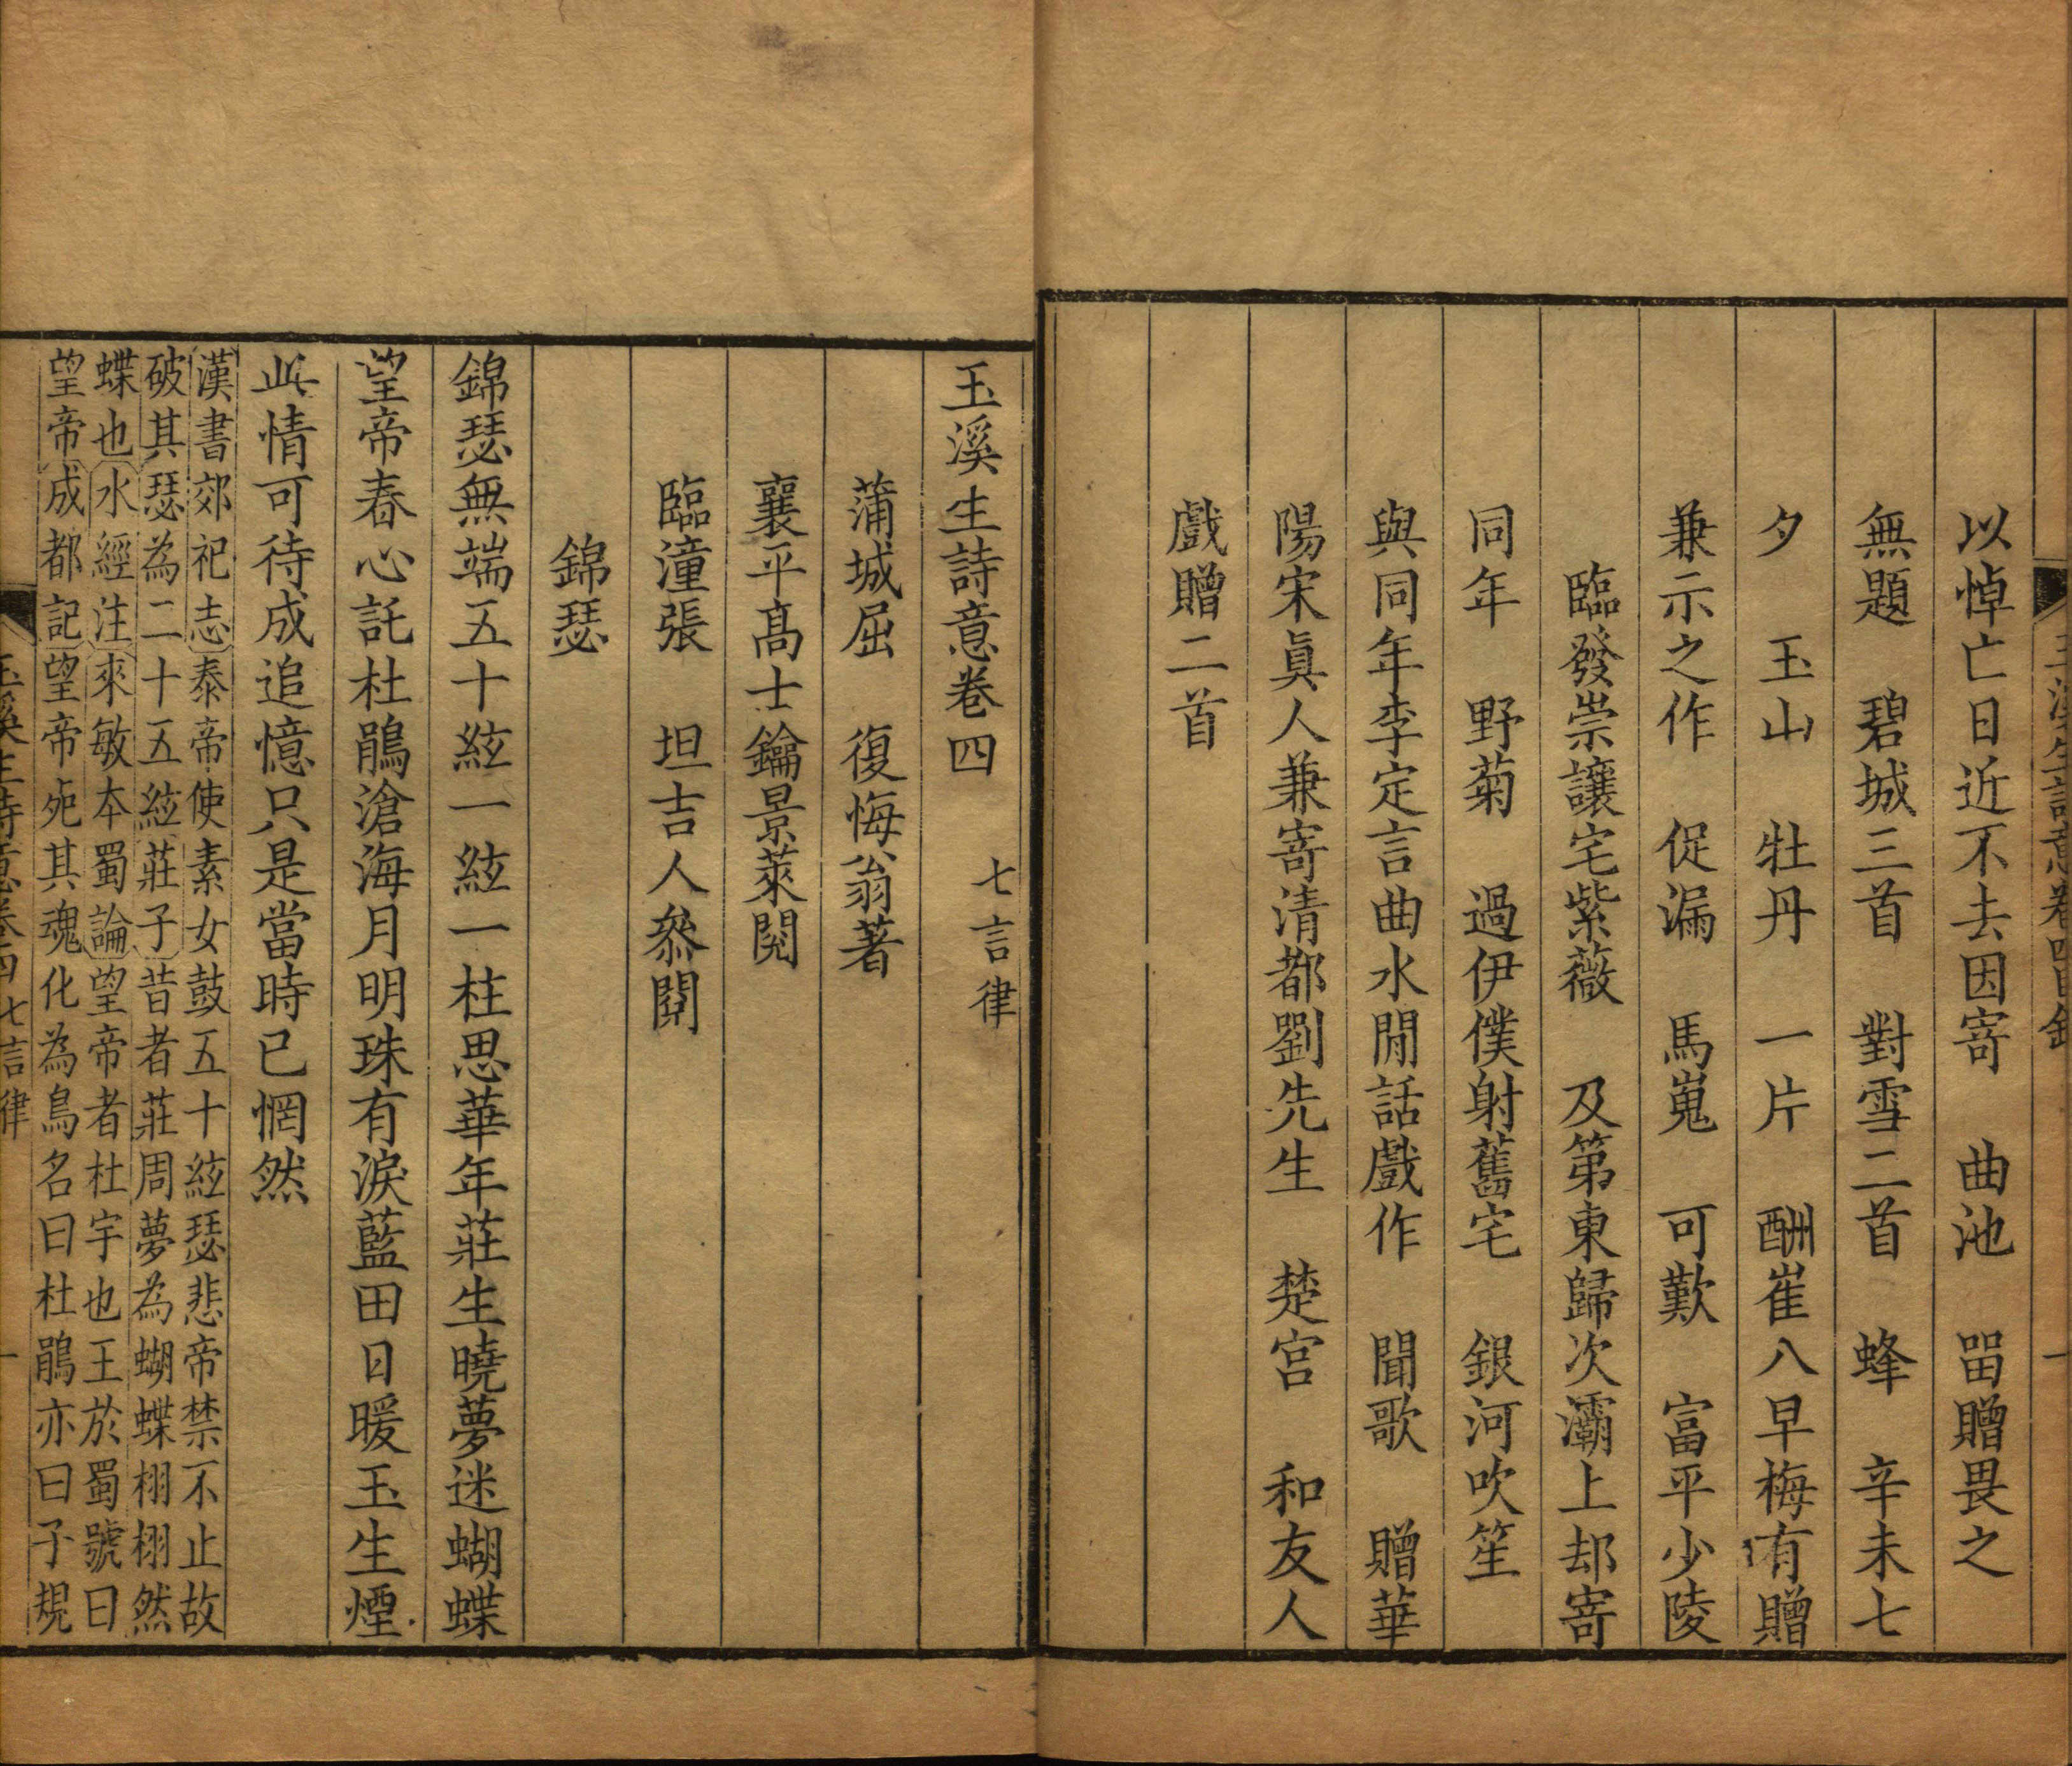 玉溪生詩意卷四目錄 一
以悼亡日近不去因寄 曲池 畱贈畏之
無題 碧城三首 對雪二首 蜂 辛未七
夕 玉山 牡丹 一片 酬崔八早梅有贈
兼示之作 促漏 馬嵬 可歎 富平少陵
臨發崇讓宅紫薇 及第東歸次灞上却寄
同年 野菊 過伊僕射舊宅 銀河吹笙
與同年李定言曲水閒話戲作 聞歌 贈華
陽宋眞人兼寄清都劉先生 楚宮 和友人
戲贈二首
玉溪生詩意卷四 七言律
蒲城屈 復悔翁著
襄平高士鑰景萊閱
臨潼張 坦吉人叅閱
錦瑟
錦瑟無端五十絃一絃一柱思華年莊生曉夢迷蝴蝶
望帝春心託杜鵑滄海月明珠有淚藍田日暖玉生煙
此情可待成追憶只是當時已惘然
漢書郊祀志泰帝使素女鼓五十絃瑟悲帝禁不止故
破其瑟為二十五絃莊子昔者莊周夢為蝴蝶栩栩然
蝶也水經注來敏本蜀論望帝者杜宇也王於蜀號曰
望帝成都記望帝死其魂化為鳥名曰杜鵑亦曰子規
玉溪生詩意卷四 七言律 一